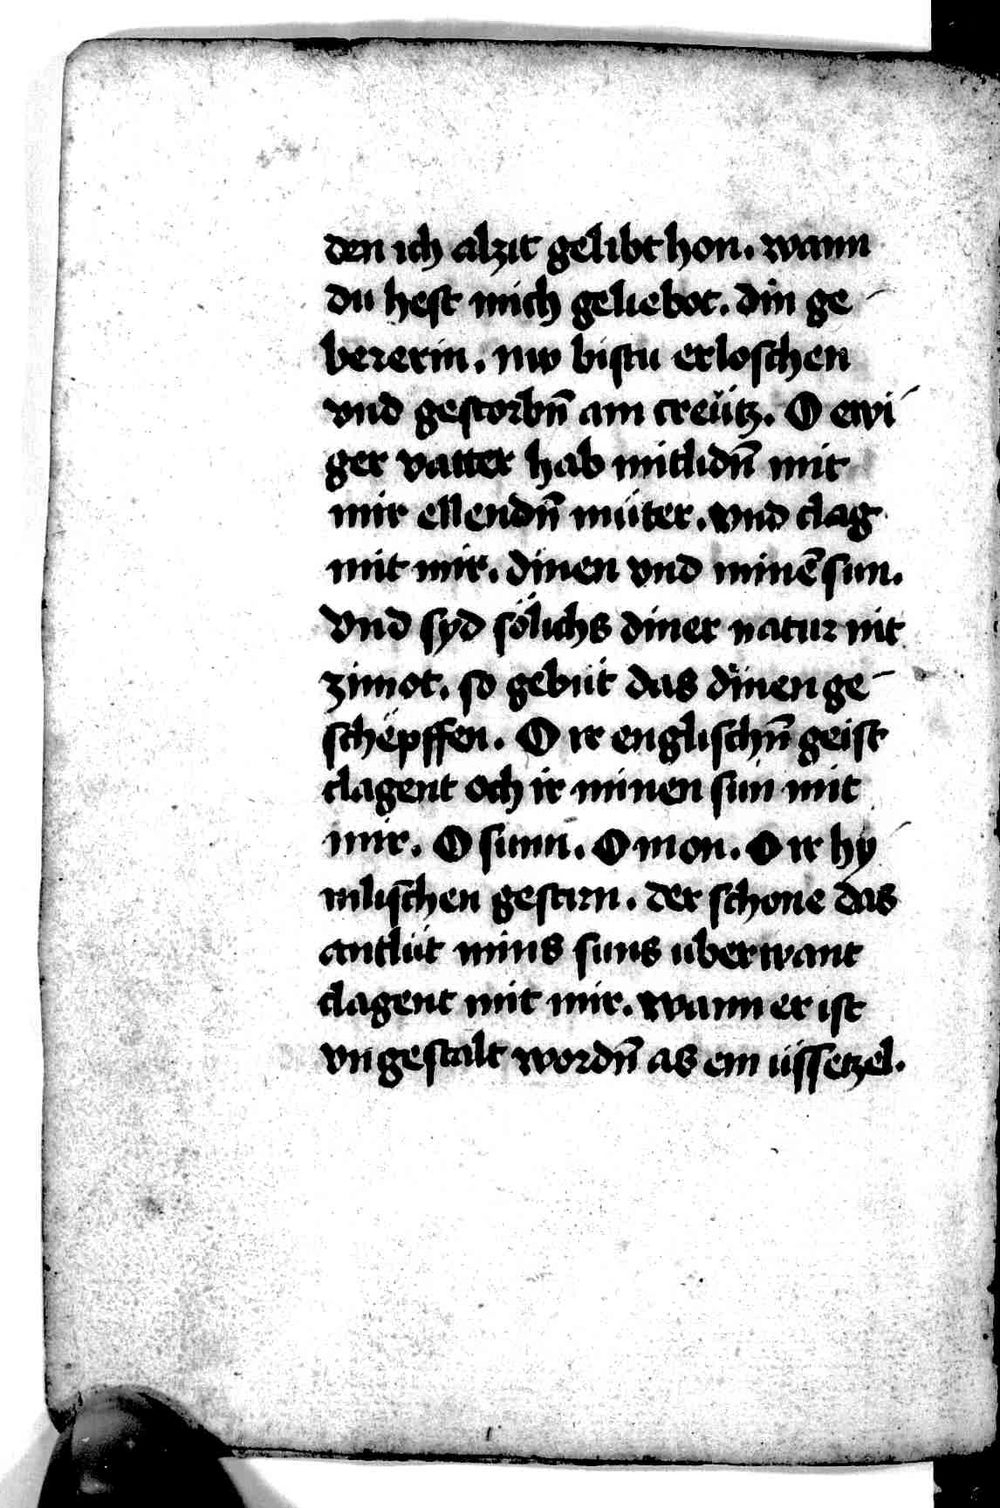 den ich alzit gelibt hon. wann
du hest mich geliebot. din ge
bererin. nw bistu erloschen
vnd gestorbn̄ am creütz. O ewi
ger vatter hab mitlidn̄ mit
mir ellendn̄ müter. vnd clag
mit mir. dinen vnd minē sun.
Vnd syd sölichs diner natur nit
zimot. so gebüt das dinen ge
schëpffen. O ir englischn̄ geist
clagent och ir minen sun mit
mir. O sunn. O mon. O ir hy
mlischen gestirn. der schone das
antlüt mins suns uberwant
clagent mit mir. wann er ist
vngestalt wordn̄ as ein üssetzel.